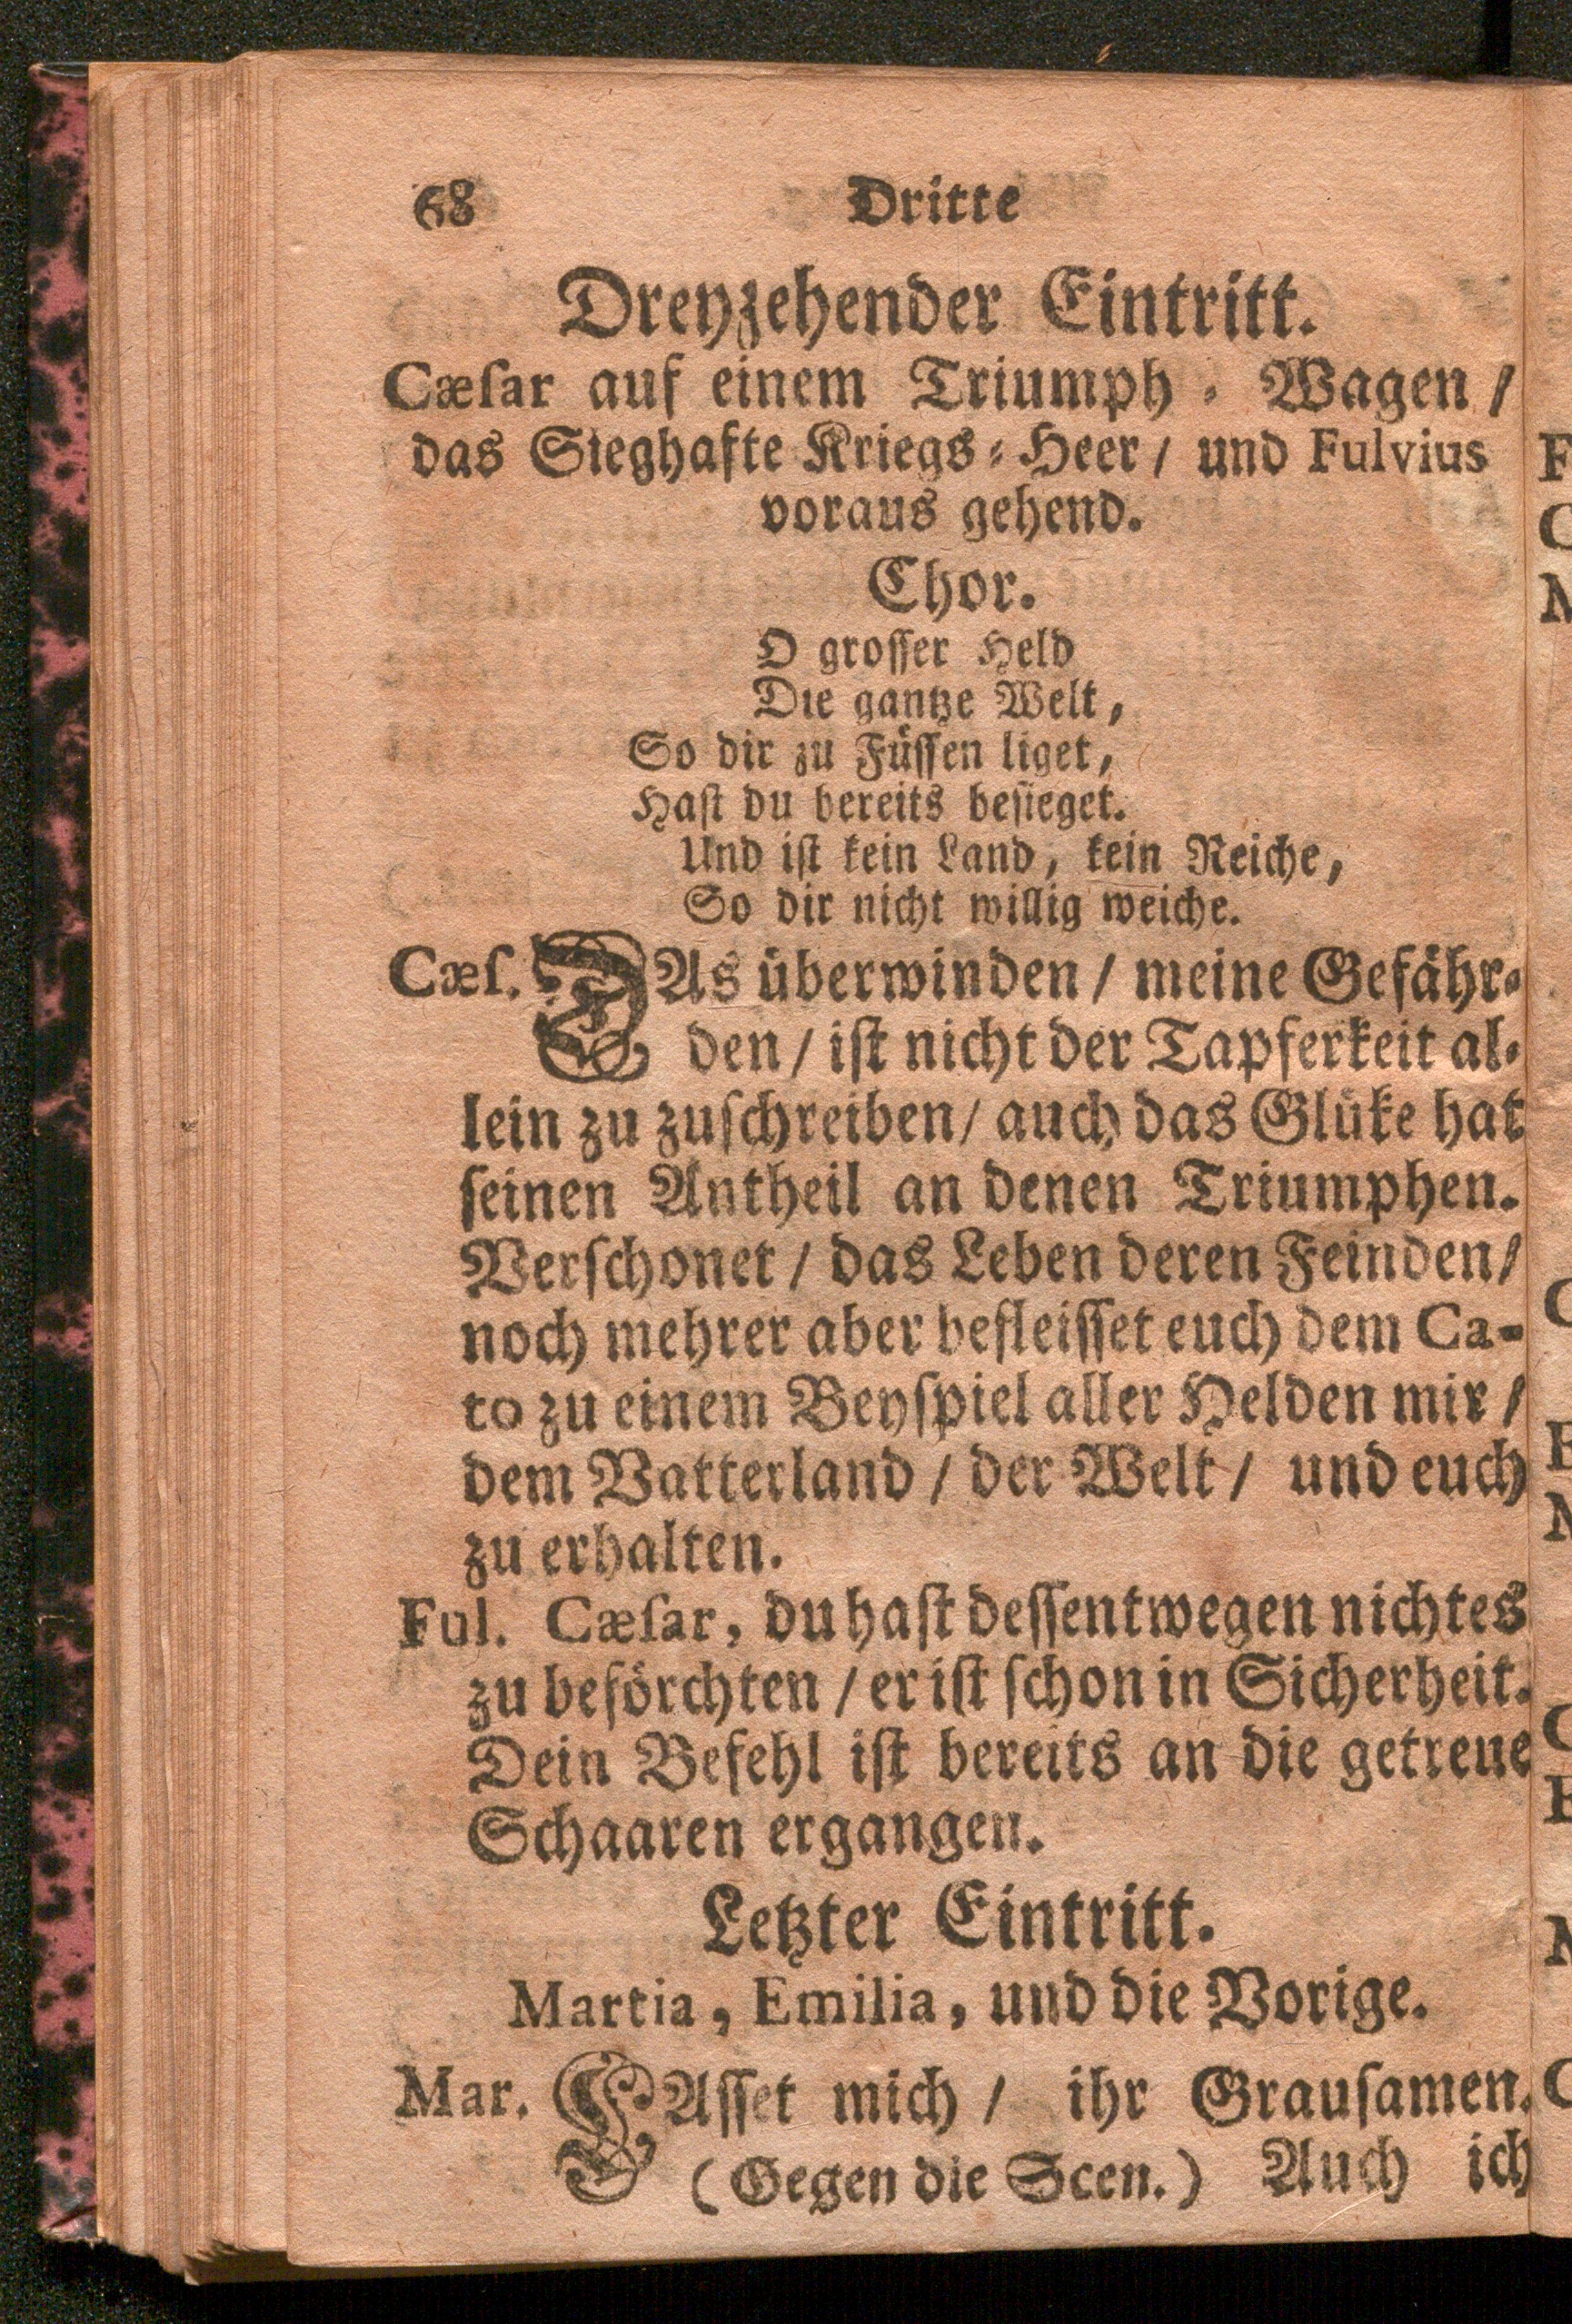 68 Dritte
Dreyzehender Eintritt.
Cæſar auf einem Triumph-Wagen /
das Sieghafte Kriegs-Heer / und Fulvius
voraus gehend.
Chor.
O groſſer Held
Die gantze Welt,
So dir zu Füſſen liget,
Haſt du bereits beſieget.
Und iſt kein Land, kein Reiche,
So dir nicht willig weiche.
Cæſ. DAs überwinden / meine Gefähr-
den / iſt nicht der Tapferkeit al-
lein zu zuſchreiben / auch das Glüke hat
ſeinen Antheil an denen Triumphen.
Verſchonet / das Leben deren Feinden /
noch mehrer aber befleiſſet euch dem Ca-
to zu einem Beyſpiel aller Helden mir /
dem Vatterland / der Welt / und euch
zu erhalten.
Ful. Cæſar, du haſt deſſentwegen nichtes
zu beförchten / er iſt ſchon in Sicherheit.
Dein Befehl iſt bereits an die getreue
Schaaren ergangen.
Letzter Eintritt.
Martia, Emilia, und die Vorige.
Mar. LAſſet mich / ihr Grauſamen.
(Gegen die Scen.) Auch ich